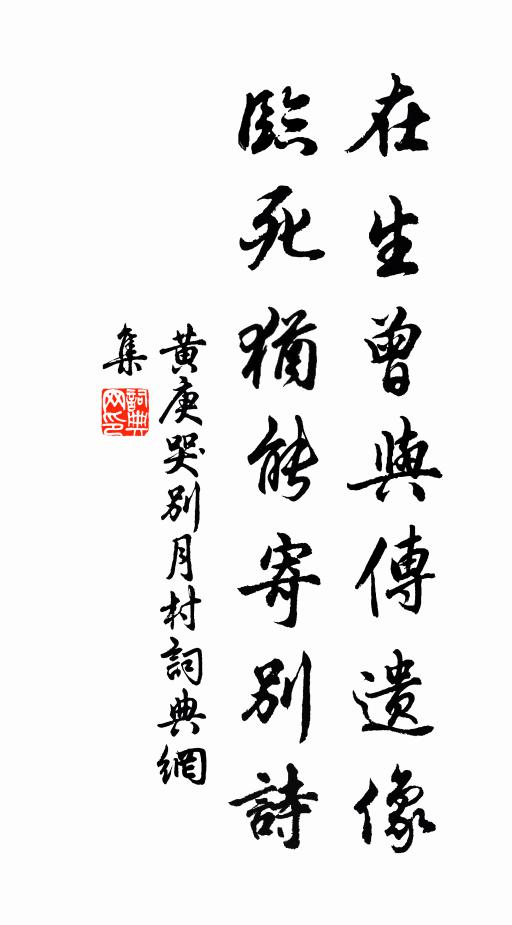 在生曾與傳遺像
臨死猶能寄別詩
黃庚哭別月村詞典網
集
詞典
网印